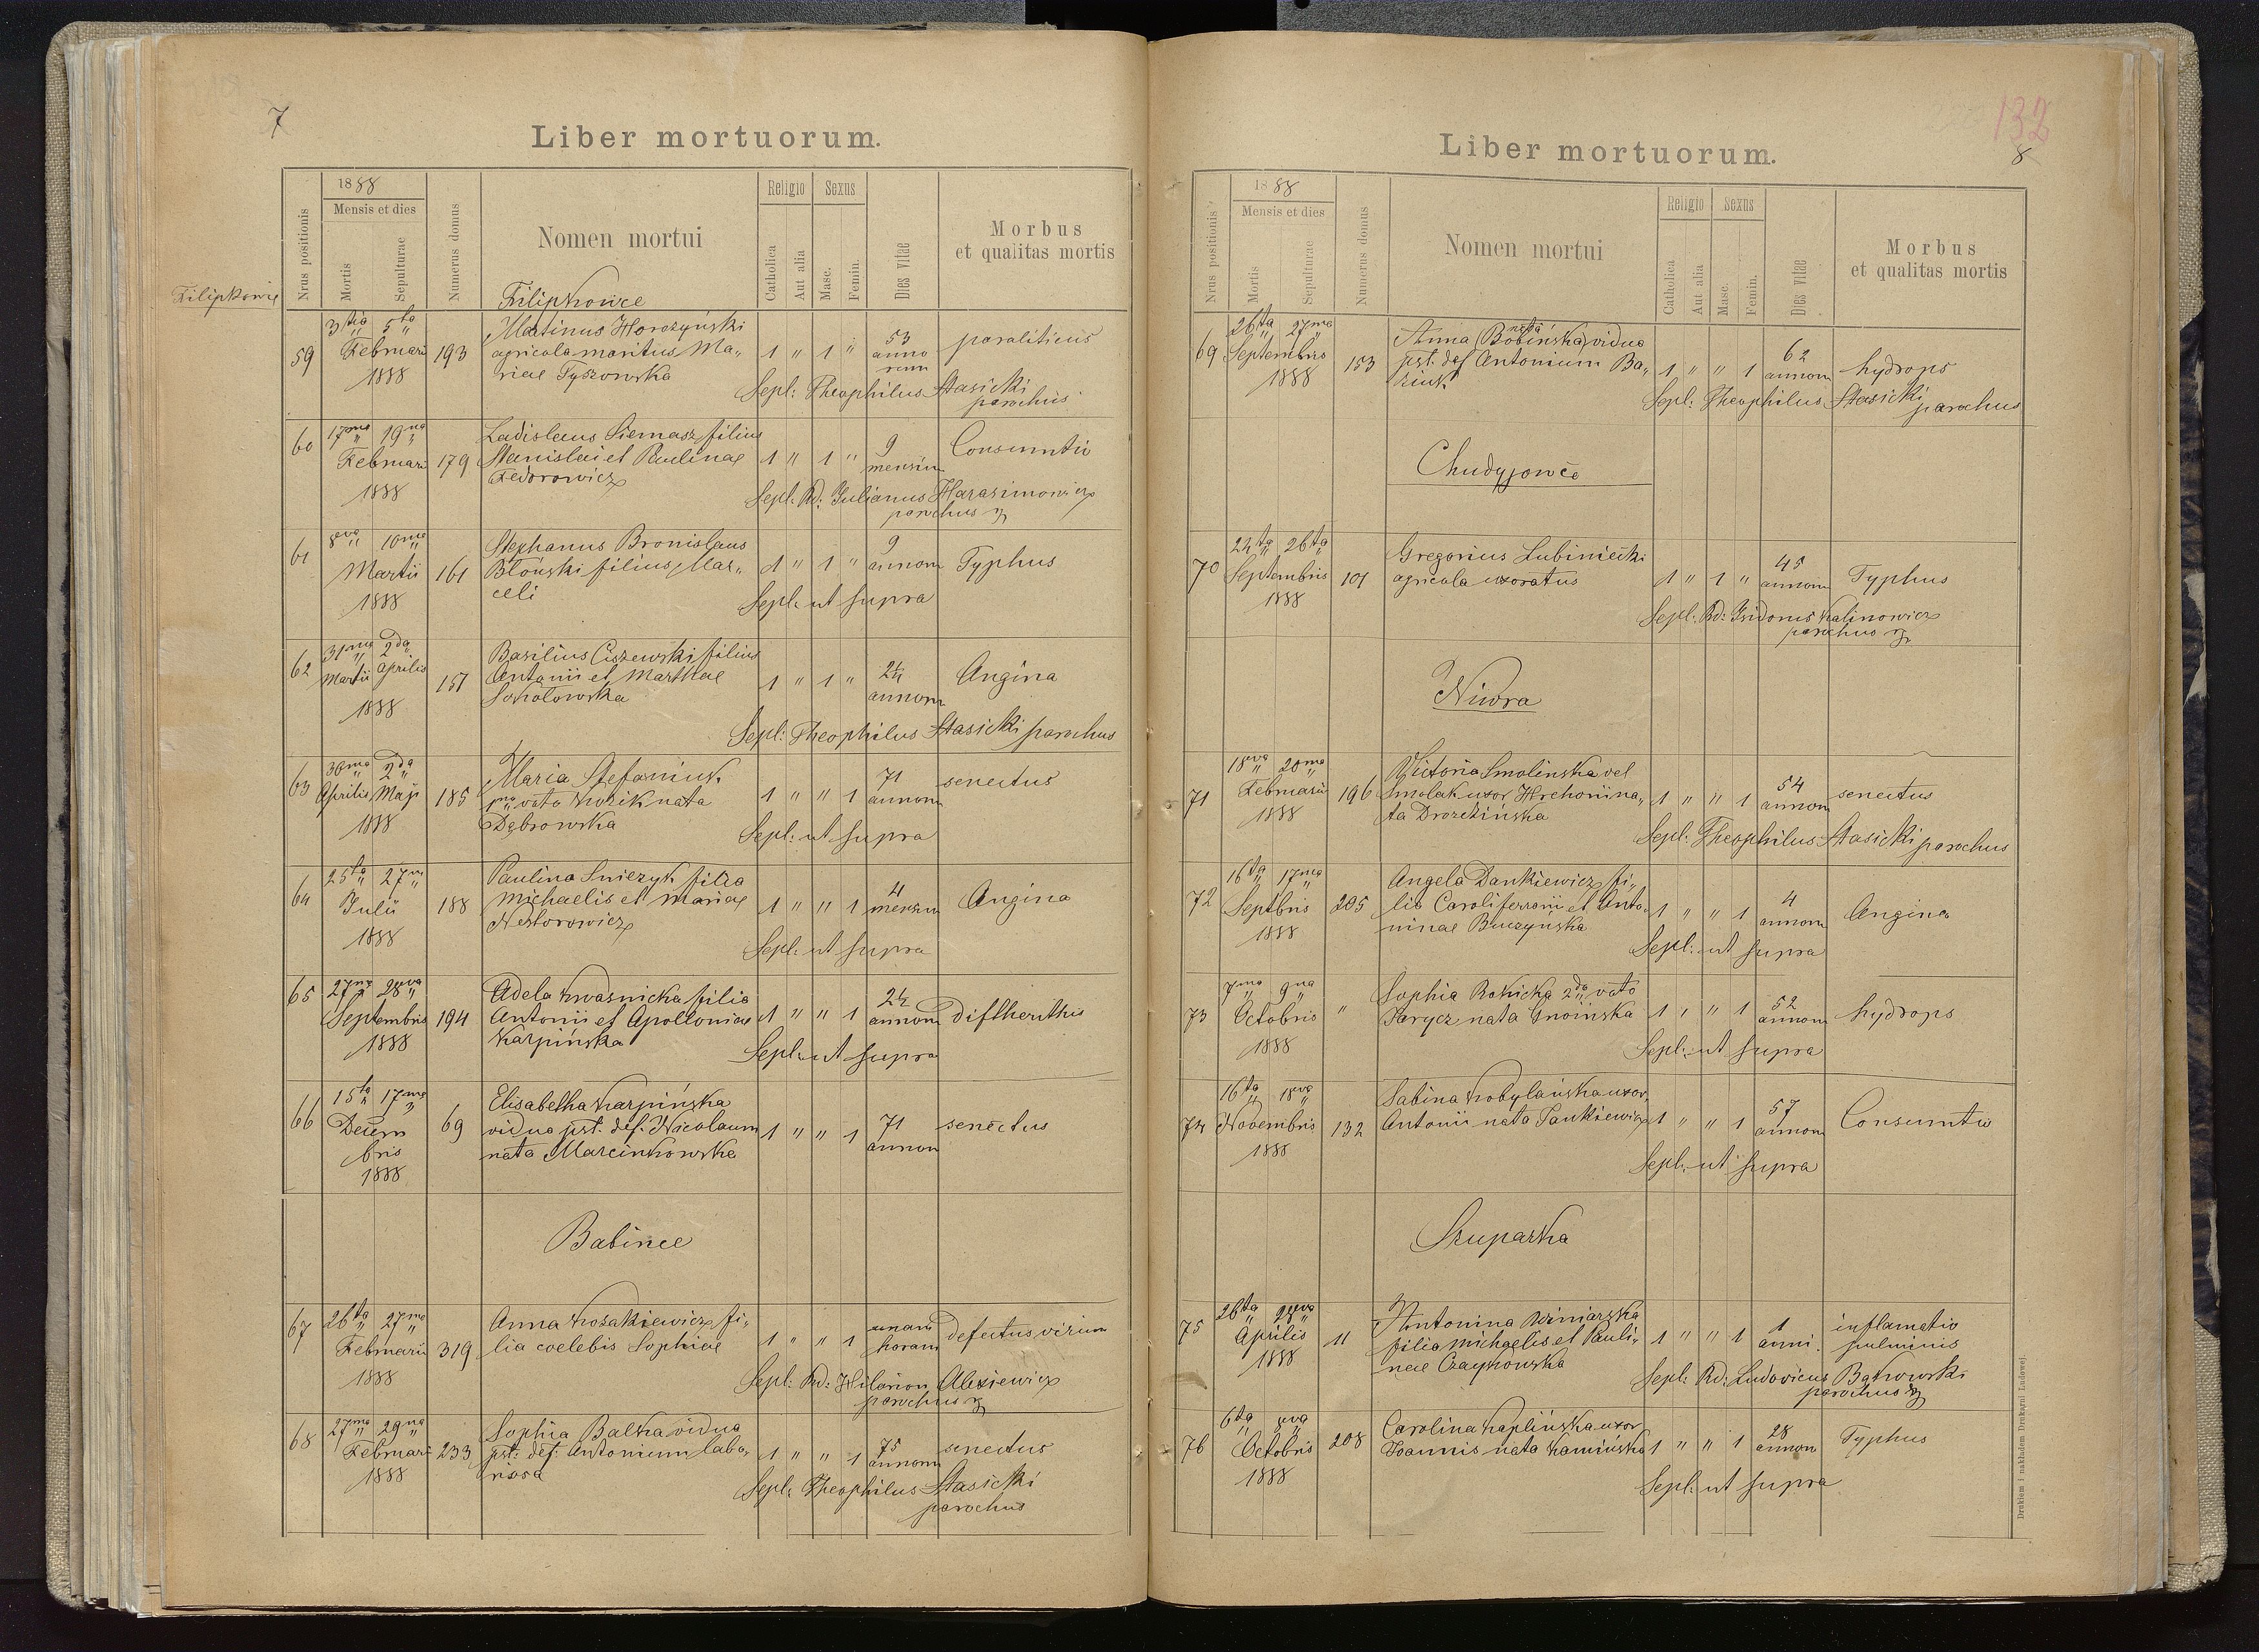 7
Liber mortuorum.
Nrus positionis
1888
Mensis et dies
Mortis
Sepulturae
Numerus domus
Nomen mortui
Religio
Catholica
Aut alia
Sexus
Masc.
Femin.
Dies vitae
Morbus
et qualitas mortis
Filipkowce
59 3tia 5ta Februari 1888 193
Martinus Horczyński
agricola maritus Ma„
riae Tyszowska
1 " 1 " 53 anno rum paraliticus
Sepl: Theophilus Stasicki
parochus
60 17ma 19na Februari 1888 179
Ladislaus Siemasz filius
Stanislai et Paulinae
Fedorowicz
1 " 1 " 9 mensium Consumtio
Sepl: Rd: Julianus Harasimowicz
parochus
61 8va 10ma Martii 1888 161
Stephanus Bronislaus
Błoński filius Mar„
celi
1 " 1 " 9 annorum Typhus
Sepl: ut supra
62 31ma Martii 2da Aprilis 1888 157
Basilius Ciszewski filius
Antonii et Marthae
Sokołowska
1 " 1 " annorum Angina
Sepl: Theophilus Stasicki parochus
63 30ma Aprilis 2da Maji 1888 185
Maria Stefaniuk
voto Kozik nata
Dąbrowska
1 " " 1 71 annorum senectus
Sepl: ut supra
64 25ta 27ma Julii 1888 188
Paulina Sniezyk filia
Michaelis et Mariae
Nestorowicz
1 " " 1 4 mensium Angina
Sepl: ut supra
65 27ma 28va Septembris 1888 194
Adela Kwasnicka filia
Antonii et Apolloniae
Karpińska
1 " " 1 2½ annorum diftheritis
Sepl: ut supra
66 15ta 17ma Decem bris 1888 69
Elisabetha Karpińska
vidua pst. def. Nicolaum
nata Marcinkowska
1 " " 1 71 annorum senectus
Babince
67 26ta 27ma Februarii 1888 319
Anna Kozakiewicz fi„
lia coelebis Sophiae
1 " " 1 unam horam defectus virium
Sepl: Rd: Hilarion Alexiewicz
parochus
68 27ma 29na Februari 1888 233
Sophia Balka vidua
pst: def: Antonium labo„
riosa
1 " " 1 75 annorum senectus
Sepl: Theophilus Stasicki
parochus
132
8
Liber mortuorum.
Nrus positionis
1888
Mensis et dies
Mortis
Sepulturae
Numerus domus
Nomen mortui
Religio
Catholica
Aut alia
Sexus
Masc.
Femin.
Dies vitae
Morbus
et qualitas mortis
69 26ta 27ma Septembris 1888 153
Anna (nata Bobińska) vidua
pst. def Antonium Ba„
ziuk
1 " " 1 62 annorum hydrops
Sepl: Theophilus Stasicki
parochus
Chudyjowce
70 24ta 26ta Septembris 1888 101
Gregorius Lubiniecki
agricola uxoratus
1 " 1 " 45 annorum Typhus
Sepl: Rd: Isidorus Kalinowicz
parochus
Niwra
71 18va 20ma Februarii 1888 196
Victoria Smolinska vel
Smolak uxor Hrehorii na„
ta Drozdzińska
1 " " 1 54 annorum senectus
Sepl: Theophilus Stasicki parochus
72 16ta 17ma Septbris 1888 205
Angela Dankiewicz fi„
lia Caroli ferrarii et Anto„
ninae Buczyńska
1 " " 1 4 annorum Angina
Sepl: ut supra
73 7ma 9na Octobris 1888 "
Sophia Rokicka 2da voto
Parycz nata Gnoinska
1 " " 1 52 annorum hydrops
Sepl: ut supra
74 16ta 18va Novembris 1888 132
Sabina Kobylańska uxor
Antonii nata Pankiewicz
1 " " 1 57 annorum Consumtio
Sepl: ut supra
Szuparka
75 26ta 28va Aprilis 1888 11
Antonina Winiarska
filia Michaelis et Pauli„
nae Czaykowska
1 " " 1 1 anni. inflamatio
pulminis
Sepl: Rd: Ludovicus Bakowski
parochus
76 6ta 8va Octobris 1888 208
Carolina Kaplińska uxor
Joannis nata Kamińska
1 " " 1 28 annorum Typhus
Sepl: ut supra
Drukiem i nakładem Drukarni Ludowej.